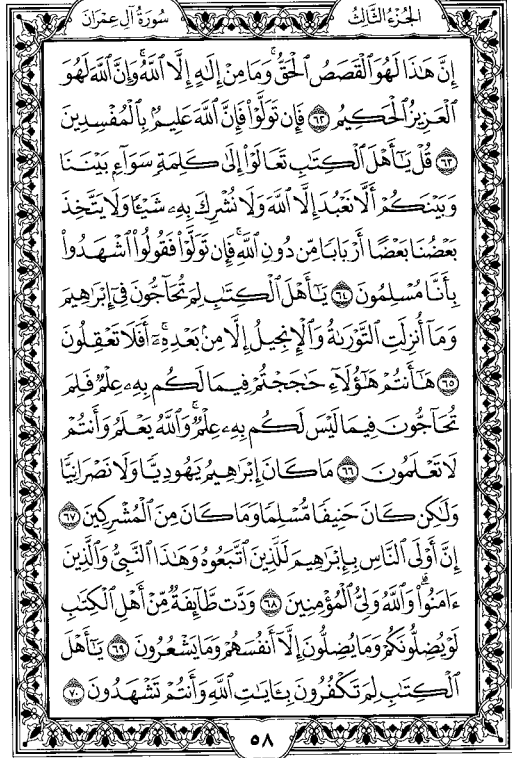 سُورَةُ آلِ عِمْرَان
الجُزْءُ الثَّالِثُ
إِنَّ هَٰذَا لَهُوَ ٱلْقَصَصُ ٱلْحَقُّۚ وَمَا مِنْ إِلَٰهٍ إِلَّا ٱللَّهُۚ وَإِنَّ ٱللَّهَ لَهُوَ
ٱلْعَزِيزُ ٱلْحَكِيمُ ٦٢ فَإِن تَوَلَّوْا۟ فَإِنَّ ٱللَّهَ عَلِيمٌۢ بِٱلْمُفْسِدِينَ
٦٣ قُلْ يَٰٓأَهْلَ ٱلْكِتَٰبِ تَعَالَوْا۟ إِلَىٰ كَلِمَةٍ سَوَآءٍۭ بَيْنَنَا
وَبَيْنَكُمْ أَلَّا نَعْبُدَ إِلَّا ٱللَّهَ وَلَا نُشْرِكَ بِهِۦ شَيْـًٔا وَلَا يَتَّخِذَ
بَعْضُنَا بَعْضًا أَرْبَابًا مِّن دُونِ ٱللَّهِۚ فَإِن تَوَلَّوْا۟ فَقُولُوا۟ ٱشْهَدُوا۟
بِأَنَّا مُسْلِمُونَ ٦٤ يَٰٓأَهْلَ ٱلْكِتَٰبِ لِمَ تُحَآجُّونَ فِىٓ إِبْرَٰهِيمَ
وَمَآ أُنزِلَتِ ٱلتَّوْرَىٰةُ وَٱلْإِنجِيلُ إِلَّا مِنۢ بَعْدِهِۦٓۚ أَفَلَا تَعْقِلُونَ
٦٥ هَٰٓأَنتُمْ هَٰٓؤُلَآءِ حَٰجَجْتُمْ فِيمَا لَكُم بِهِۦ عِلْمٌ فَلِمَ
تُحَآجُّونَ فِيمَا لَيْسَ لَكُم بِهِۦ عِلْمٌۚ وَٱللَّهُ يَعْلَمُ وَأَنتُمْ
لَا تَعْلَمُونَ ٦٦ مَا كَانَ إِبْرَٰهِيمُ يَهُودِيًّا وَلَا نَصْرَانِيًّا
وَلَٰكِن كَانَ حَنِيفًا مُّسْلِمًا وَمَا كَانَ مِنَ ٱلْمُشْرِكِينَ ٦٧
إِنَّ أَوْلَى ٱلنَّاسِ بِإِبْرَٰهِيمَ لَلَّذِينَ ٱتَّبَعُوهُ وَهَٰذَا ٱلنَّبِىُّ وَٱلَّذِينَ
ءَامَنُوا۟ۗ وَٱللَّهُ وَلِىُّ ٱلْمُؤْمِنِينَ ٦٨ وَدَّت طَّآئِفَةٌ مِّنْ أَهْلِ ٱلْكِتَٰبِ
لَوْ يُضِلُّونَكُمْ وَمَا يُضِلُّونَ إِلَّآ أَنفُسَهُمْ وَمَا يَشْعُرُونَ ٦٩ يَٰٓأَهْلَ
ٱلْكِتَٰبِ لِمَ تَكْفُرُونَ بِـَٔايَٰتِ ٱللَّهِ وَأَنتُمْ تَشْهَدُونَ ٧٠
٥٨